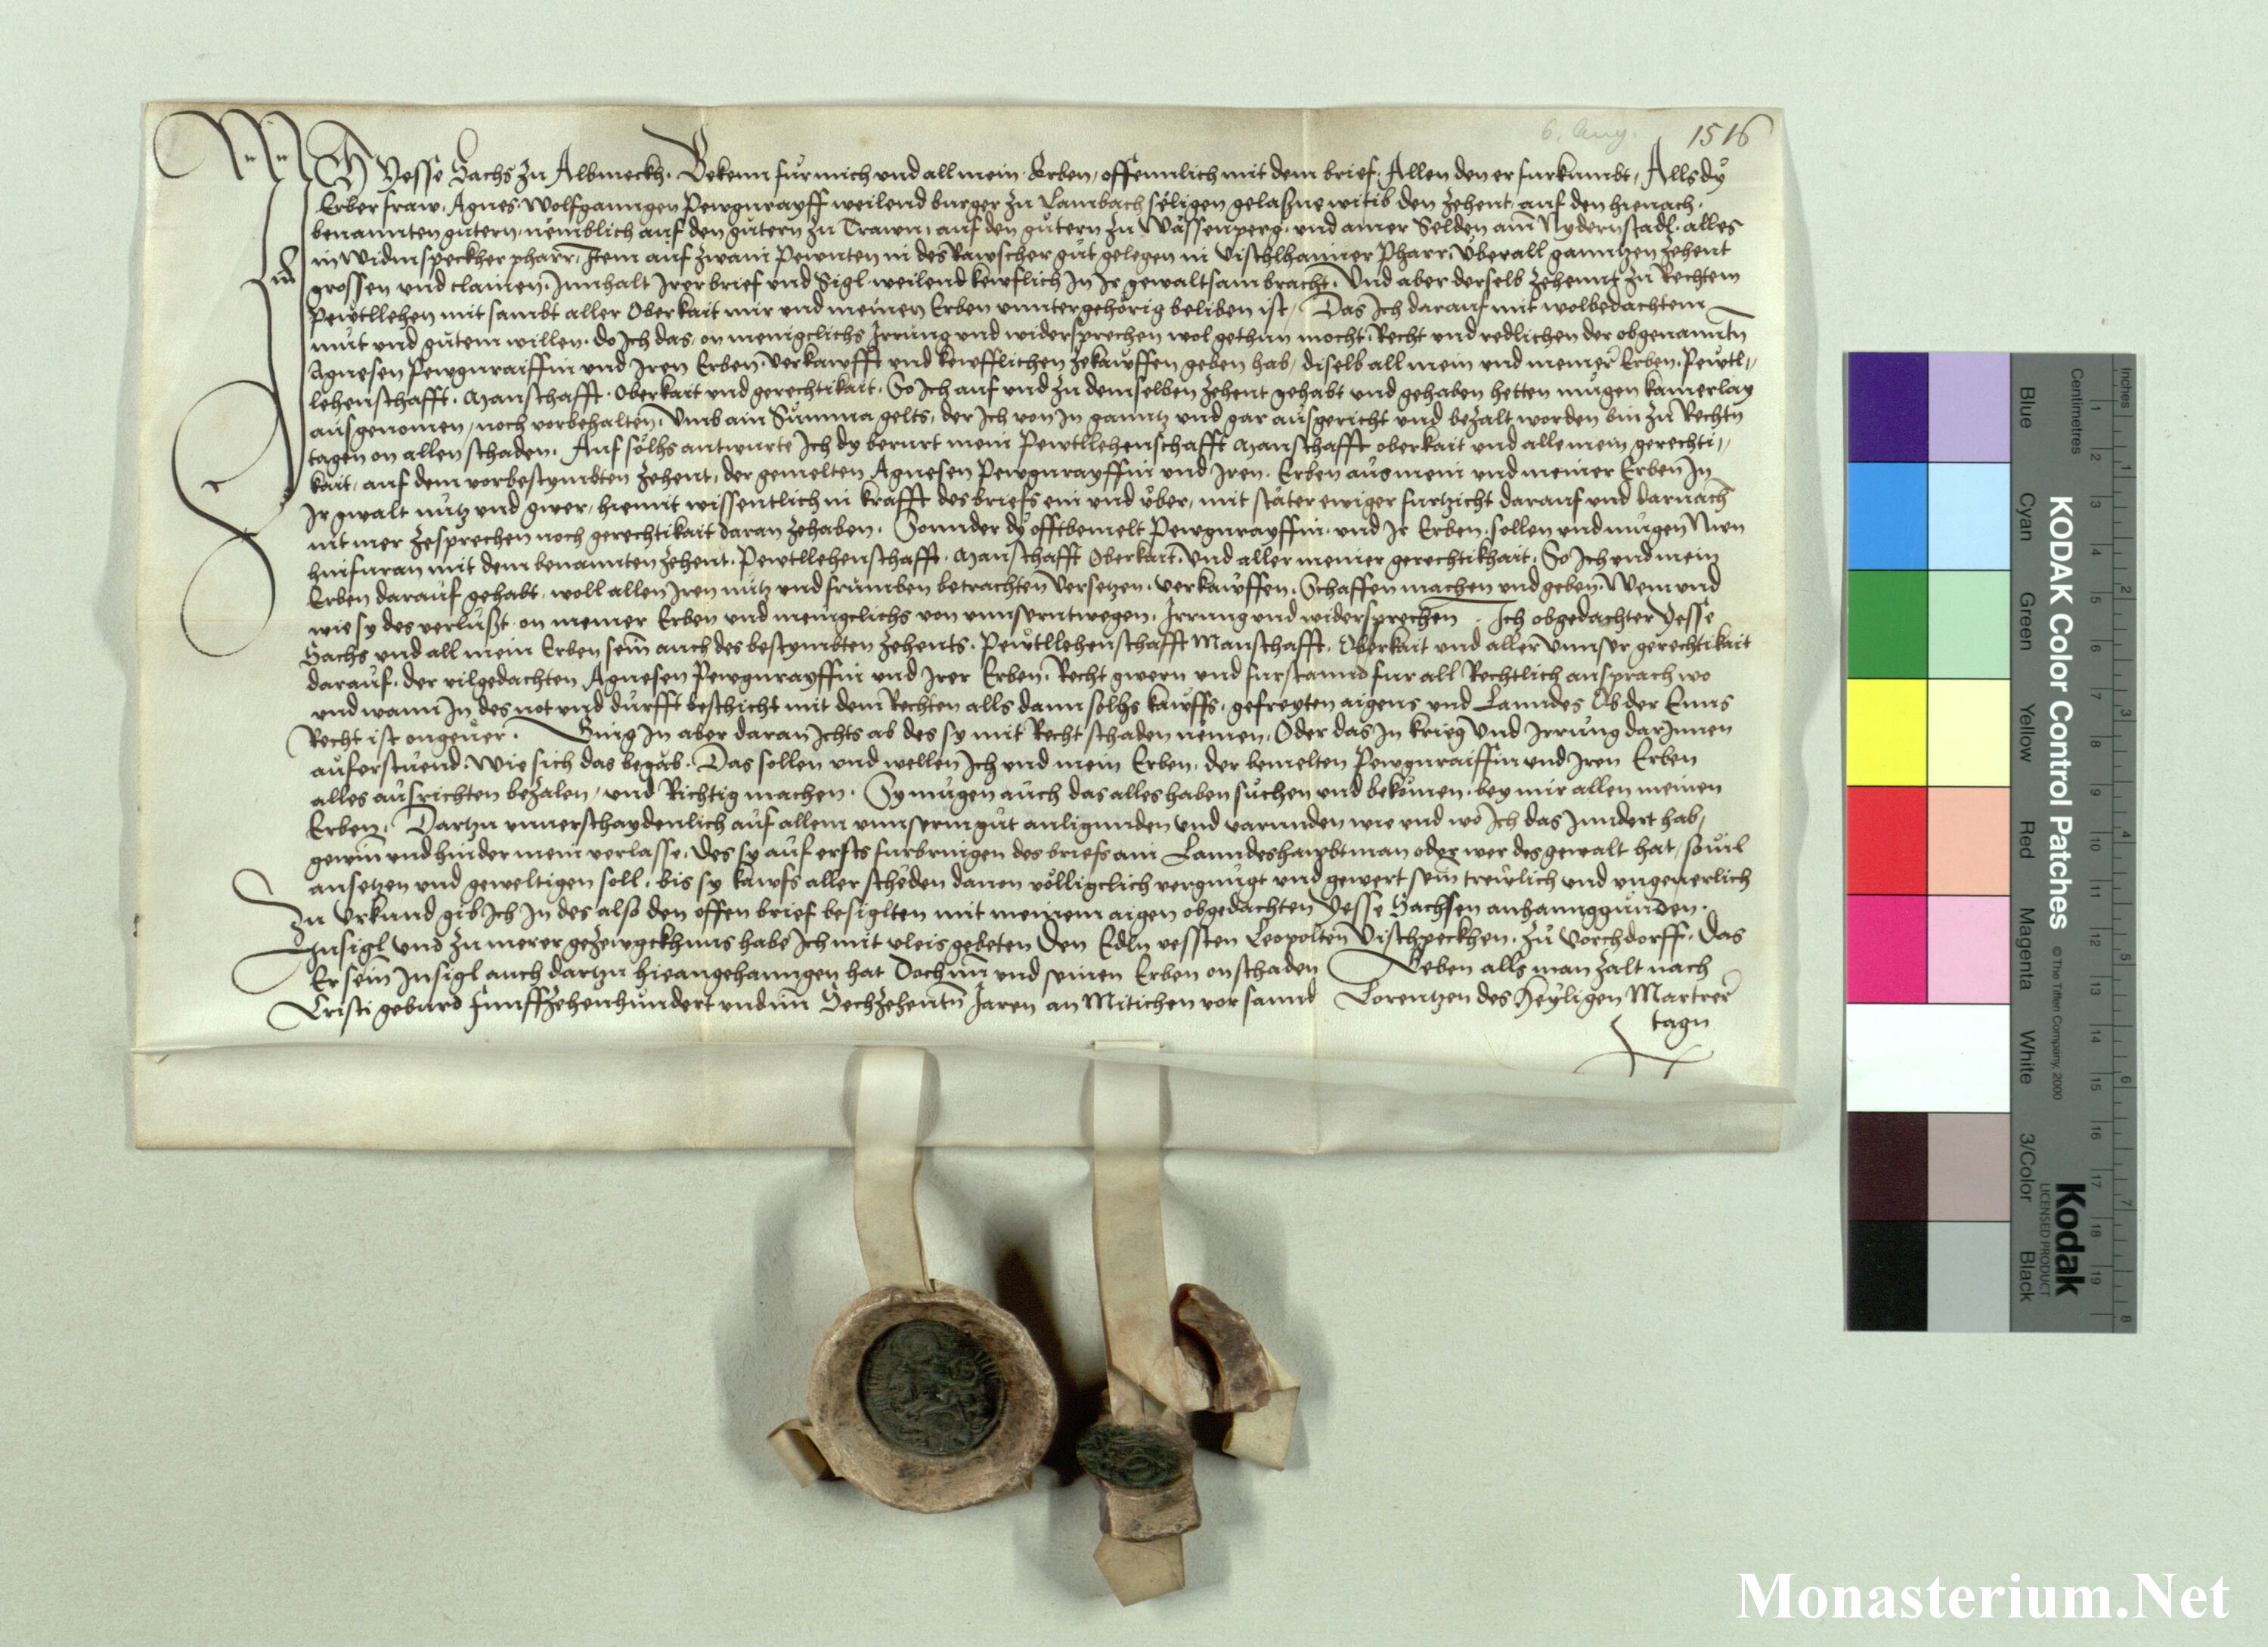 6. Aug. 1516
Ich Jesse Sachs zu Albmeckh. Bekenn fur mich vnd all mein Erben, offennlich mit dem brief. Allen den er furkumbt, Alls dy
Erber fraw, Agnes Wolfganngen Pewgnrayff weilend burger zu Lambach seligen gelaßne witib den zehent, auf den hienach
benannten gutern, nemblich auf den gutern zu Trawn, auf den gutern zu Wassenperg, vnd ainer Selden am Nydernstadl. alles
in Widmspeckher pharr, Item auf zwain Pewnten in des Rawscher gut gelegen in Vischlhamer Pharr, Vberall ganntzen zehent
grossen vnd clainen, Innhalt Irer brief vnd Sigl. weilend kewflich In Ir gewaltsam bracht. Vnd aber derselb zehennt zu Rechtem
Pewtllehen mit sambt aller Oberkait mir vnd meinen Erben vnntergehorig beliben ist, Das Ich darauf mit wolbedachtem
mut vnd gutem willen. do Ich das, on menigclichs Irrung vnd widersprechen wol gethun mocht, Recht vnd redlichen der obgenanntn
Agnesen Pewgnraiffin vnd Iren Erben, Verkawfft vnd kewfflichen zekawffen geben hab, diselb all mein vnd meiner Erben, Pewtl,,
lehenschafft, Manschafft, Oberkait vnd gerechtikait, So Ich auf vnd zu demselben zehent gehabt vnd gehaben hetten mugen kainerlay
ausgenomen, noch vorbehalten, Vmb ain Summa gelts, der Ich von In ganntz vnd gar ausgericht vnd bezalt worden bin zu Rechtn
tagen on allen schaden. Auf solhs antwurte Ich dy berurt mein Pewtllehenschafft Manschafft oberkait vnd alle mein gerechti,,
kait, auf dem vorbestymbten zehent, der gemelten Agnesen Pewgnrayffin vnd Iren Erben aus mein vnd meiner Erben In
Ir gwalt nutz vnd gwer, hiemit wissentlich in krafft des briefs ein vnd vber, mit stater ewiger furtzicht darauf vnd darnach
nit mer zesprechen noch gerechtikait daran zehaben. Sonnder dy offtbemelt Pewgnrayffin, vnd Ir Erben, sollen vnd mugen Nun
hinfuran mit dem benannten zehent, Pewtllehenschafft, Manschafft Oberkait, Vnd aller meiner gerechtikhait, So Ich vnd mein
Erben darauf gehabt, woll allen Iren nutz vnd frumben betrachten Versetzen, verkawffen, Schaffen machen vnd geben, Wem vnd
wie sy des verlusst, on meiner Erben vnd menigclichs von vnnserntwegen, Irrung vnd widersprechen. Ich obgedachter Jesse
Sachs vnd all mein Erben sein auch des bestymbten zehents, Pewtllehenschafft Manschafft, Oberkait vnd aller vnnser gerechtikait
darauf, der vilgedachten Agnesen Pewgnrayffin vnd Irer Erben, Recht gwern vnd furstannd fur all Rechtlich ansprach wo
vnd wann In des not vnd durfft beschicht mit dem Rechten alls dann solhs kawffs, gefreyten aigens vnd Lanndes Ob der Enns
Recht ist ongeuer. Gieng In aber daran Ichts ab des sy mit Recht schaden nemen, Oder das In krieg Vnd Irrung darInnen
auferstuend. Wie sich das begab. Das sollen vnd wellen Ich vnd mein Erben, der bemelten Pewgnraiffin vnd Iren Erben
alles ausrichten bezalen, vnd Richtig machen. Sy mugen auch das alles haben suchen vnd bekomen, bey mir allen meinen
Erben, Dartzu vnuerschaydenlich auf allem vnnserm gut anligunden vnd varunden wie vnd wo Ich das Inndert hab,
gewin vnd hinder mein verlasse, Des sy auf ersts furbringen des briefs ain Lanndeshawbtman oder wer des gewalt hat, souil
ansetzen vnd geweltigen soll, bis sy kawfs aller scheden dauon volligclich vergnugt vnd gewert sein trewlich vnd vngeuerlich
Zu Vrkund gib Ich In des also den offen brief besiglten mit meinem aigen obgedachten Jesse Sachsen anhannggunden
Insigl, Vnd zu merer gezewgckhnus habe Ich mit vleis gebeten Den Edln vessten Leopolten Vischpeckhen, zu Vorchdorff, Das
Er sein Insigl auch dartzu hieangehanngen hat Doch im vnd seinen Erben on schaden Geben alls man zalt nach
Cristi geburd Funffzehenhundert vnd im Sechzehentn Jaren an Mitichen vor sannd Lorentzen des Heyligen Martrer
tagn
KODAK Color Control Patches
© The Tiffen Company, 2000
Kodak
LICENSED PRODUCT
Blue Cyan Green Yellow Red Magenta White 3/Color Black
Inches 1 2 3 4 5 6 7 8
Centimetres 1 2 3 4 5 6 7 8 9 10 11 12 13 14 15 16 17 18 19
Monasterium.Net